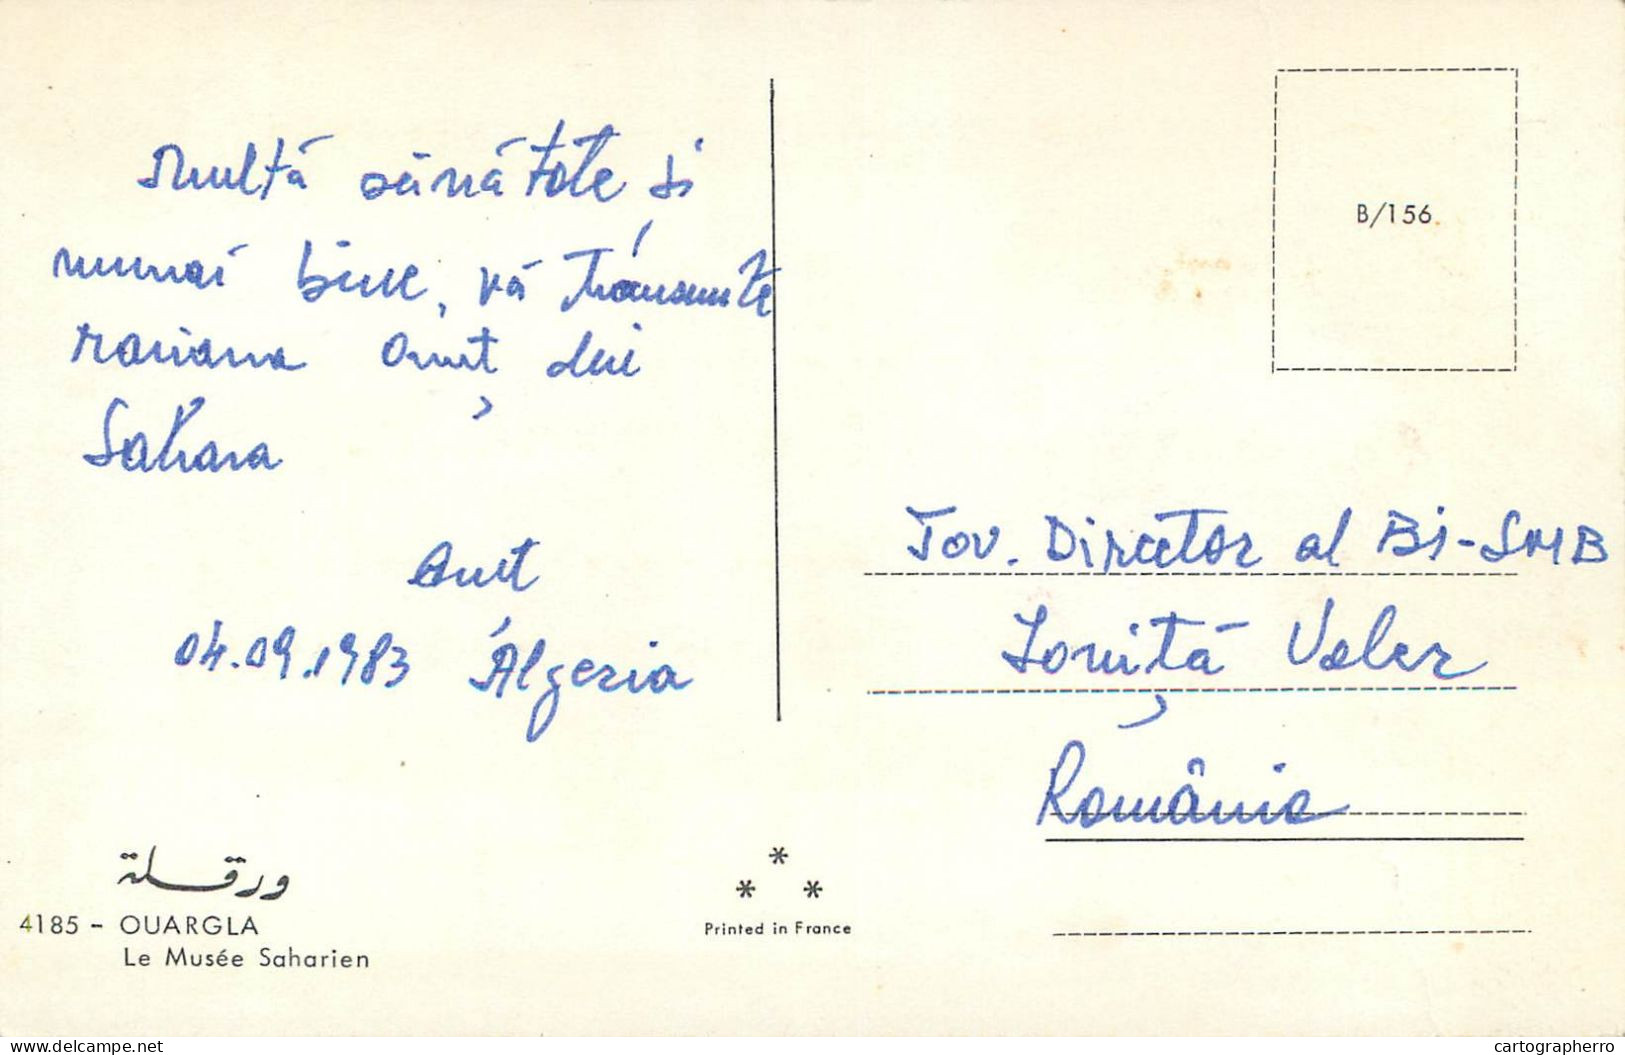 Multă sănătate și
numai bine, vă transmite
mariana lui
Sahara
04.09.1983 Algeria
B/156
Tov. Director al BJ-SMB
Ioniță Valer
România
ورقلة
4185 - OUARGLA
Le Musée Saharien
* * *
Printed in France
delcampe.net
cartographerro